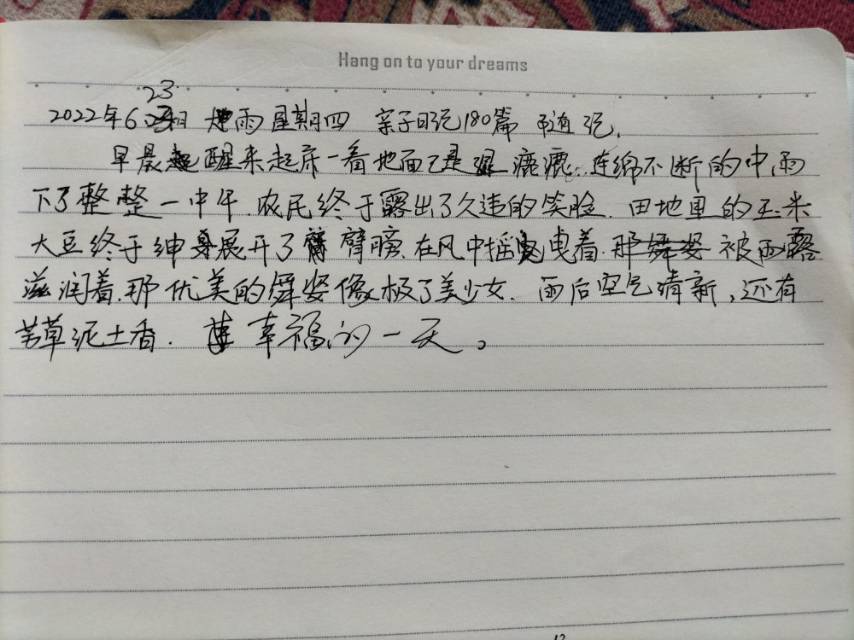 Hang on to your dreams
2022年6.23日 雨 星期四 亲子日记180篇 随记.
早晨醒来起床一看地面已是湿漉漉.连绵不断的中雨
下了整整一中午.农民终于露出了久违的笑脸.田地里的玉米
大豆终于绅展开了臂膀.在风中摇曳着.被雨露
滋润着.那优美的舞姿像极了美少女.雨后空气清新,还有
芳草泥土香.幸福的一天。